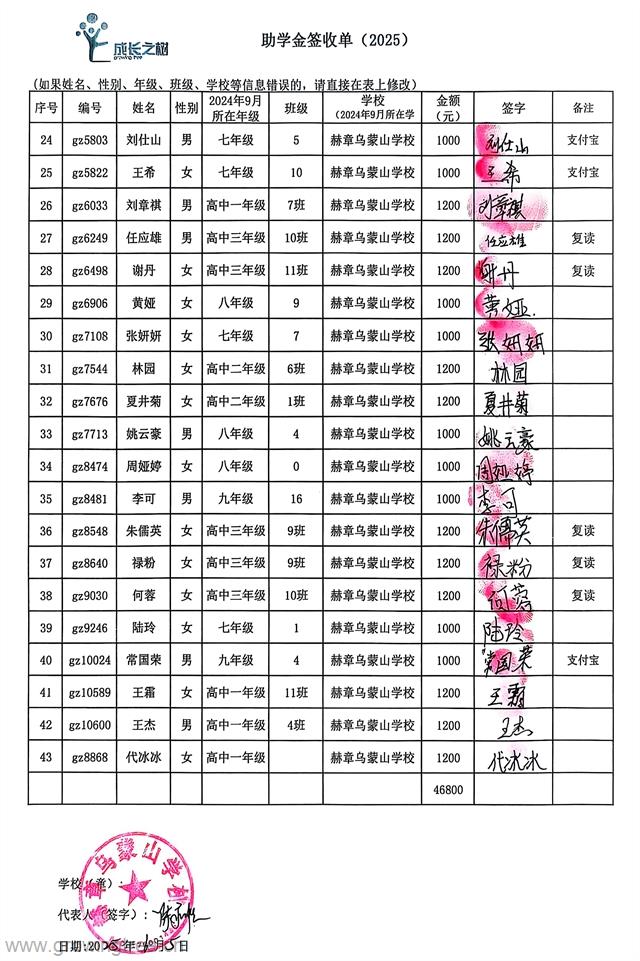 成长之树
Growing Tree
助学金签收单（2025）
(如果姓名、性别、年级、班级、学校等信息错误的，请直接在表上修改)
序号 编号 姓名 性别 2024年9月所在年级 班级 学校（2024年9月所在学 金额（元） 签字 备注
24 gz5803 刘仕山 男 七年级 5 赫章乌蒙山学校 1000 刘仕山 支付宝
25 gz5822 王希 女 七年级 10 赫章乌蒙山学校 1000 王希 支付宝
26 gz6033 刘章祺 男 高中一年级 7班 赫章乌蒙山学校 1200 刘章祺
27 gz6249 任应雄 男 高中三年级 10班 赫章乌蒙山学校 1200 任应雄 复读
28 gz6498 谢丹 女 高中三年级 11班 赫章乌蒙山学校 1200 谢丹 复读
29 gz6906 黄娅 女 八年级 9 赫章乌蒙山学校 1000 黄娅.
30 gz7108 张妍妍 女 七年级 7 赫章乌蒙山学校 1000 张妍妍
31 gz7544 林园 女 高中二年级 6班 赫章乌蒙山学校 1200 林园
32 gz7676 夏井菊 女 高中二年级 1班 赫章乌蒙山学校 1200 夏井菊
33 gz7713 姚云豪 男 八年级 4 赫章乌蒙山学校 1000 姚云豪
34 gz8474 周娅婷 女 八年级 0 赫章乌蒙山学校 1000 周娅婷
35 gz8481 李可 男 九年级 16 赫章乌蒙山学校 1000 李可
36 gz8548 朱儒英 女 高中三年级 9班 赫章乌蒙山学校 1200 朱儒英 复读
37 gz8640 禄粉 女 高中三年级 9班 赫章乌蒙山学校 1200 禄粉 复读
38 gz9030 何蓉 女 高中三年级 10班 赫章乌蒙山学校 1200 何蓉 复读
39 gz9246 陆玲 女 七年级 1 赫章乌蒙山学校 1000 陆玲
40 gz10024 常国荣 男 九年级 4 赫章乌蒙山学校 1000 常国荣 支付宝
41 gz10589 王霜 女 高中一年级 11班 赫章乌蒙山学校 1200 王霜
42 gz10600 王杰 男 高中一年级 4班 赫章乌蒙山学校 1200 王杰
43 gz8868 代冰冰 女 高中一年级 赫章乌蒙山学校 1200 代冰冰
46800
赫章乌蒙山学校
学校（章）：
代表人（签字）：
日期:2025年 月5日